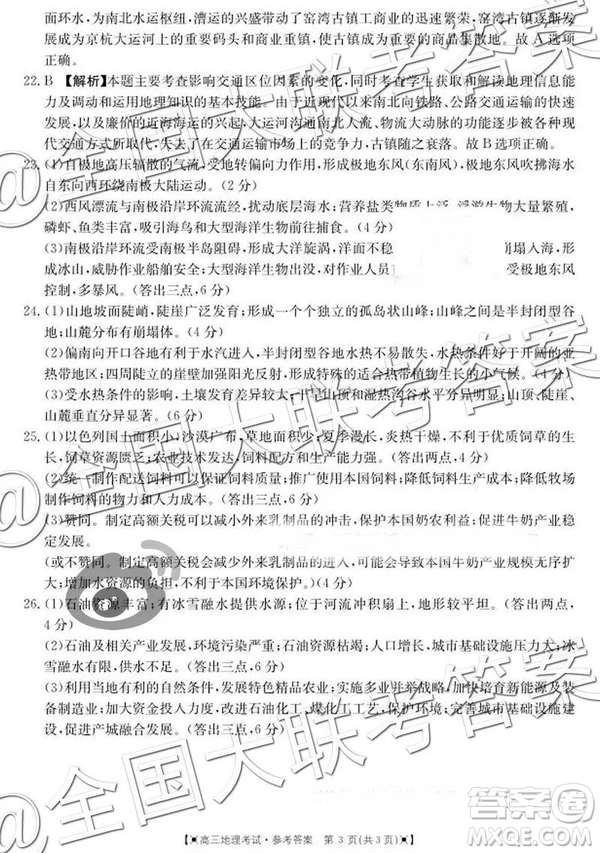 面环水,为南北水运枢纽,漕运的兴盛带动了窑湾古镇工商业的繁荣,窑湾古镇因此发展
成为京杭大运河上的重要码头和商业重镇,成为重要的商品集散地。故A选项
正确。
22. B 【解析】本题主要考查影响交通区位因素的变化,同时考查学生获取和解读地理信息能
力及调动和运用地理知识的基本技能。由于近现代以来南北向铁路、公路交通运输的快速
发展,以及廉价的近海海运的兴起,大运河沟通南北人流、物流大动脉的功能被更多的各种现
代交通方式所取代,失去了在交通运输市场上的竞争力,古镇走向了衰败。故B选项正确。
23. (1)自极地高压辐散的气流,受地转偏向力作用,形成极地东风(东南风),极地东风吹拂海水
自东向西环绕南极大陆运动。(2分)
(2)西风漂流与南极沿岸环流流经,扰动底层海水;营养盐类物质上泛,浮游生物大量繁殖,
磷虾、鱼类丰富,吸引海鸟和大型海洋生物来此捕食。(4分)
(3)南极沿岸环流受南极半岛阻碍,形成大洋旋涡,洋面不稳
崩塌入海,形
成冰山,威胁作业船舶安全;大型海洋生物出没,对作业人员
受极地东风
控制,多暴风。(答出三点,6分)
24. (1)山地坡面陡峭,陡崖广泛发育;形成一个个独立的孤岛状山峰;山峰之间为半封闭型谷
地;山麓分布有崩塌体。(4分)
(2)偏南向开口谷地有利于水汽进入,于半封闭谷地集聚,不易扩散丧失,水热条件好于同
热带地区;四周陡立的崖壁加强阳光反射,形成特殊的热带植物生长的小气候。(4分)
(3)受水热条件的影响,土壤发育差异较大;干旱山顶和湿热沟谷水平分异明显;山顶、陡崖、
山麓垂直分异显著。(6分)
25. (1)以色列国土面积小;沙漠广布,草地面积小;夏季漫长,炎热干燥;不利于优质饲草的生
长,饲草资源匮乏;农业技术发达,饲料工业水平高。(答出两点,4分)
(2)统一制作配送饲料可以保证饲料质量;推广使用本国饲料;降低饲料生产成本;降低牧场
制作饲料的物力和人力成本。(6分)
(3)赞同。制定高额关税可以减小外来乳制品的冲击,保护本国奶农利益;促进牛奶产业稳定
发展。
(或不赞同。制定高额关税,减少外来乳制品的进入,可能会导致本国牛奶产业规模无序扩
大;增加水资源的负担;不利于本国环境保护。)(4分)
26. (1)石油资源丰富;有冰雪融水(绿洲)分布;位于河流冲积扇上,地形较平坦。(答出两点,
4分)
(2)石油及相关产业发展,环境污染严重;石油资源枯竭;人口增长,城市基础设施压力大;冰
雪融水有限。(答出三点,6分)
(3)利用当地的自然和经济资源,实施多业并举战略,如发展农产品基地;扶持新能源及装
备制造业;加大资金投入力度,改进石油化工、煤化工工艺,保护环境;完善城市基础设施建
设,促进产城融合发展。(答出三点,6分)
【高三地理考试·参考答案 第3页(共3页)】
@全国大联考答案
答案圈
MXQE.COM